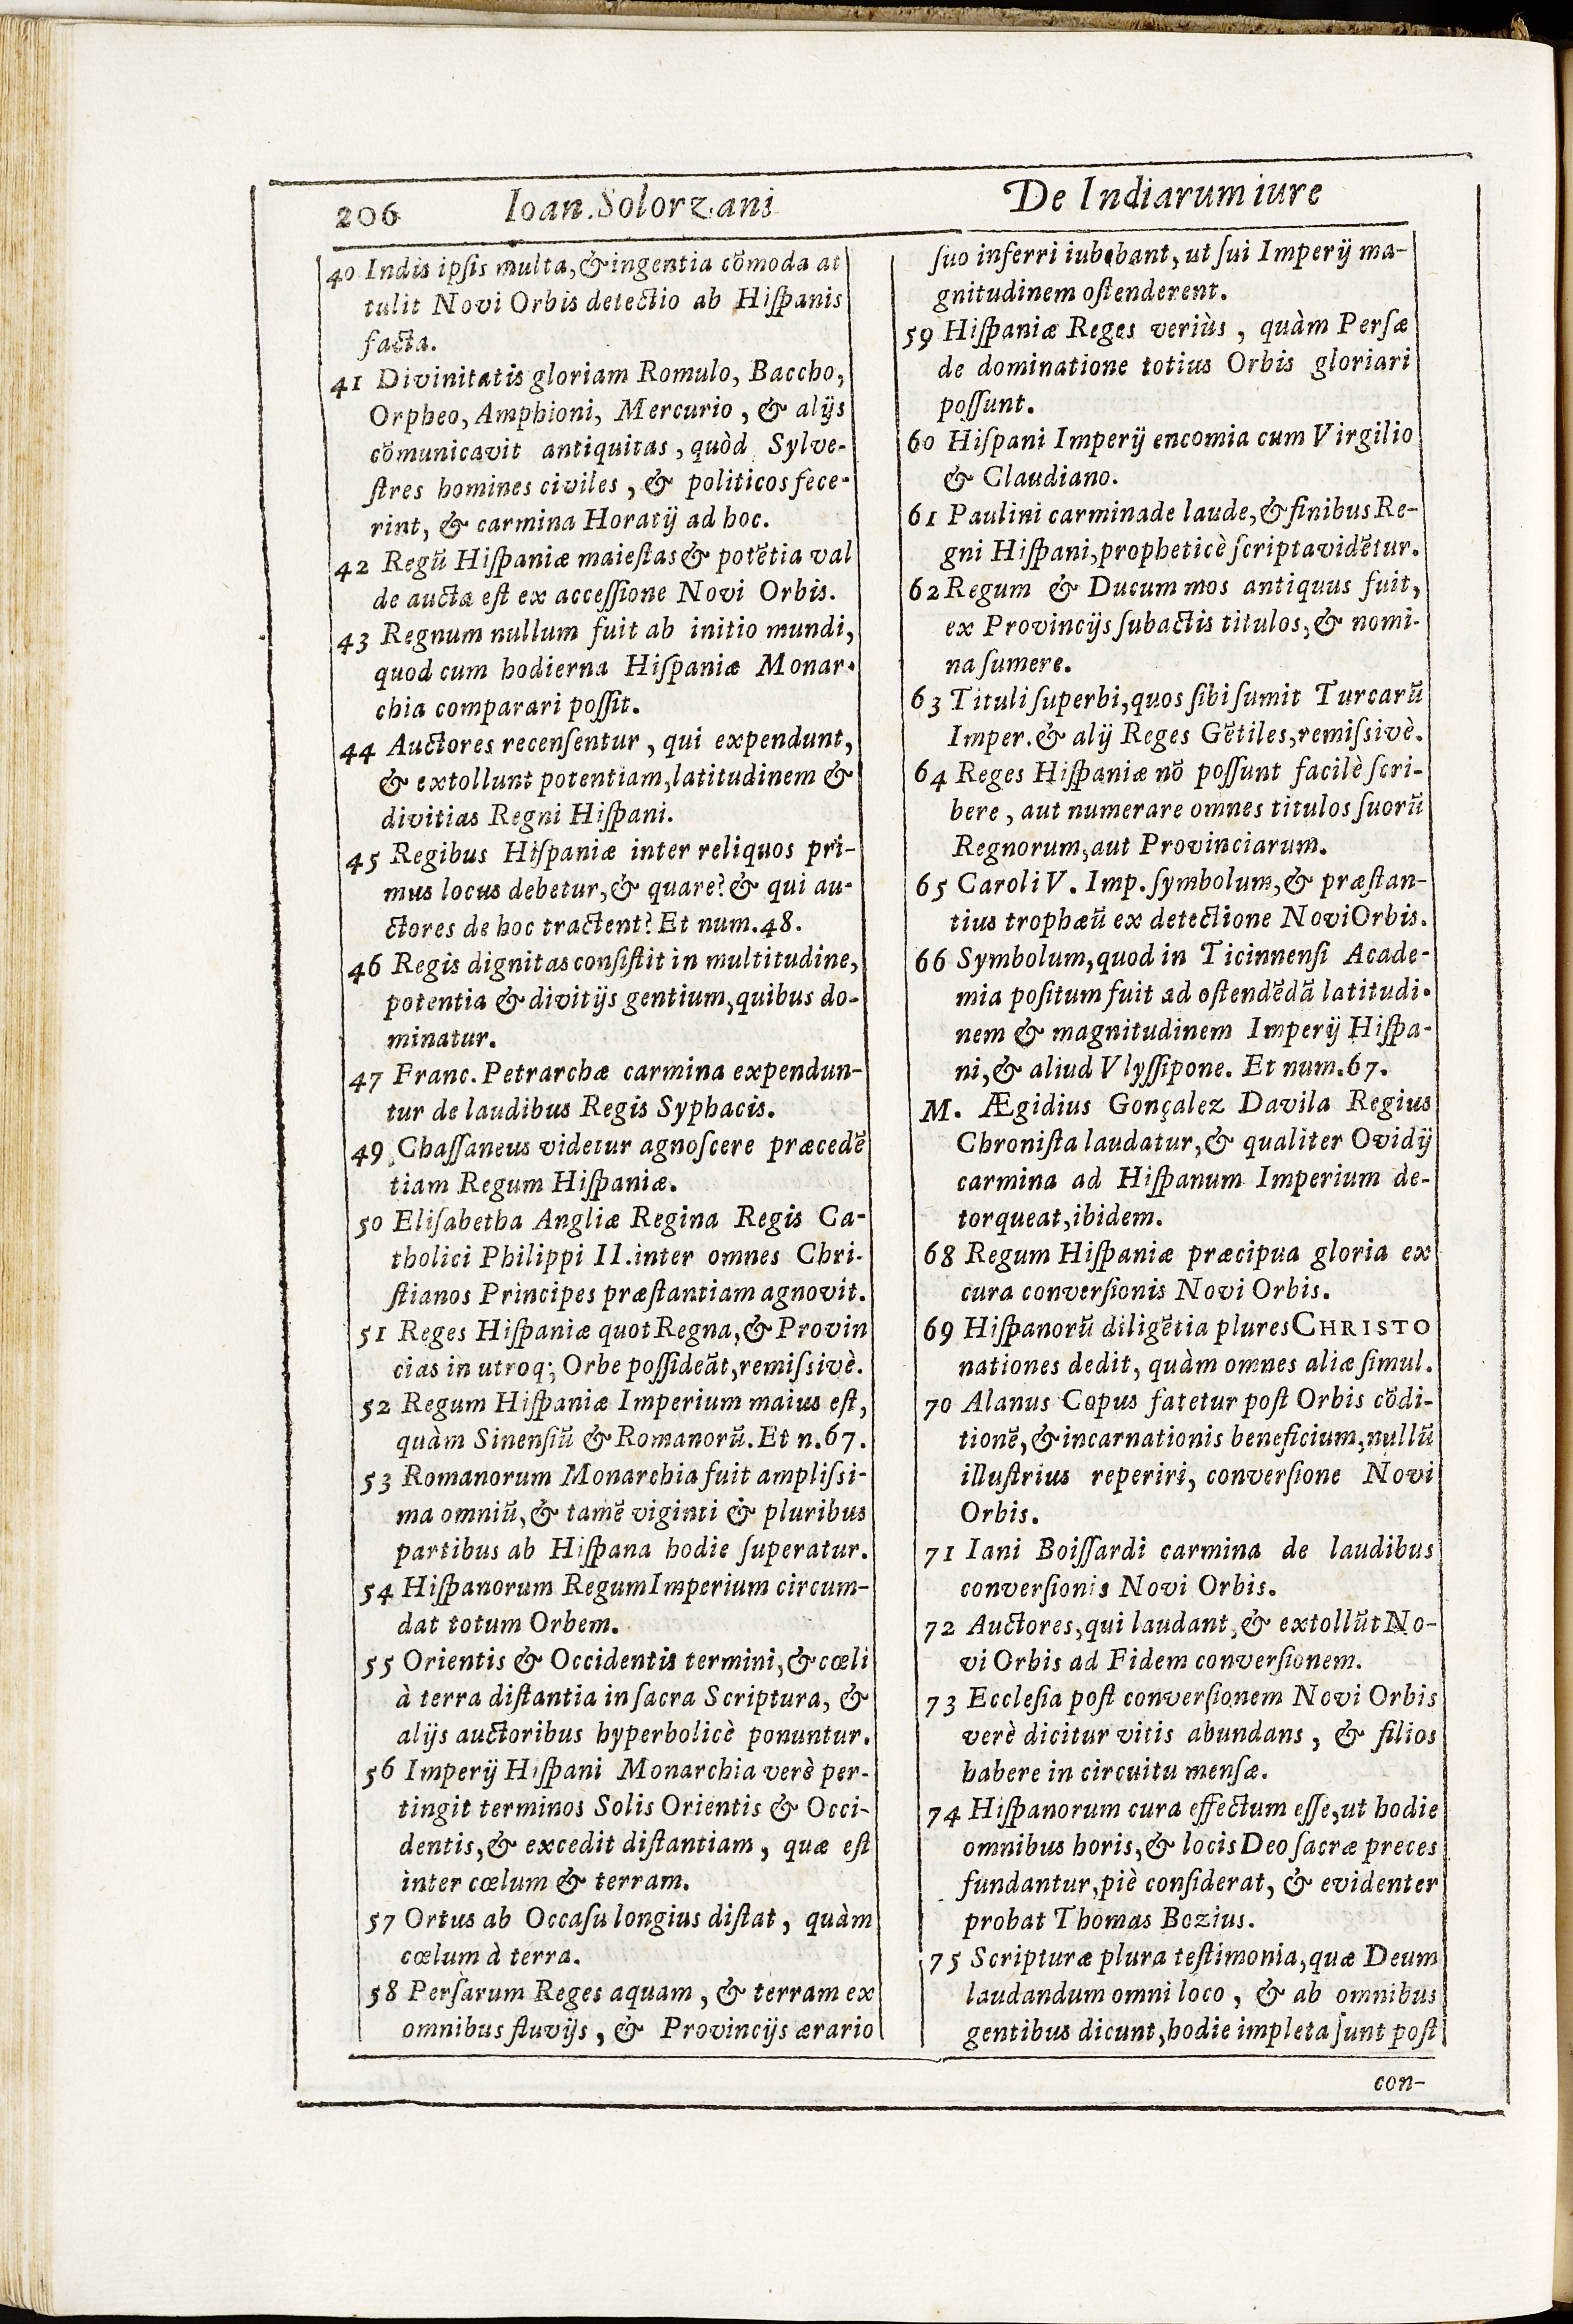 206 Ioan. Solorzani De Indiarum iure
40 Indis ipſis multa, & ingentia cõmoda at
tulit Novi Orbis detectio ab Hiſpanis
facta.
41 Divinitatis gloriam Romulo, Baccho,
Orpheo, Amphioni, Mercurio, & alijs
cõmunicavit antiquitas, quòd Sylve-
ſtres homines civiles, & politicos fece-
rint, & carmina Horatij ad hoc.
42 Regũ Hiſpaniæ maieſtas & potẽtia val
de aucta eſt ex acceſſione Novi Orbis.
43 Regnum nullum fuit ab initio mundi,
quod cum hodierna Hiſpaniæ Monar-
chia comparari poſſit.
44 Auctores recenſentur, qui expendunt,
& extollunt potentiam, latitudinem &
divitias Regni Hiſpani.
45 Regibus Hiſpaniæ inter reliquos pri-
mus locus debetur, & quare? & qui au-
ctores de hoc tractent? Et num. 48.
46 Regis dignitas conſiſtit in multitudine,
potentia & divitijs gentium, quibus do-
minatur.
47 Franc. Petrarchæ carmina expendun-
tur de laudibus Regis Syphacis.
49 Chaſſaneus videtur agnoſcere præcedẽ
tiam Regum Hiſpaniæ.
50 Eliſabetha Angliæ Regina Regis Ca-
tholici Philippi II. inter omnes Chri-
ſtianos Principes præſtantiam agnovit.
51 Reges Hiſpaniæ quot Regna, & Provin
cias in utroq; Orbe poſſideãt, remiſsivè.
52 Regum Hiſpaniæ Imperium maius eſt,
quàm Sinenſiũ & Romanorũ. Et n. 67.
53 Romanorum Monarchia fuit ampliſsi-
ma omniũ, & tamẽ viginti & pluribus
partibus ab Hiſpana hodie ſuperatur.
54 Hiſpanorum Regum Imperium circum-
dat totum Orbem.
55 Orientis & Occidentis termini, & cœli
à terra diſtantia in ſacra Scriptura, &
alijs auctoribus hyperbolicè ponuntur.
56 Imperij Hiſpani Monarchia verè per-
tingit terminos Solis Orientis & Occi-
dentis, & excedit diſtantiam, quæ eſt
inter cœlum & terram.
57 Ortus ab Occaſu longius diſtat, quàm
cœlum à terra.
58 Perſarum Reges aquam, & terram ex
omnibus fluvijs, & Provincijs ærario
ſuo inferri iubebant, ut ſui Imperij ma-
gnitudinem oſtenderent.
59 Hiſpaniæ Reges veriùs, quàm Perſæ
de dominatione totius Orbis gloriari
poſſunt.
60 Hiſpani Imperij encomia cum Virgilio
& Claudiano.
61 Paulini carmina de laude, & finibus Re-
gni Hiſpani, propheticè ſcripta vidẽtur.
62 Regum & Ducum mos antiquus fuit,
ex Provincijs ſubactis titulos, & nomi-
na ſumere.
63 Tituli ſuperbi, quos ſibi ſumit Turcarũ
Imper. & alij Reges Gẽtiles, remiſsivè.
64 Reges Hiſpaniæ nõ poſſunt facilè ſcri-
bere, aut numerare omnes titulos ſuorũ
Regnorum, aut Provinciarum.
65 Caroli V. Imp. ſymbolum, & præſtan-
tius trophæũ ex detectione Novi Orbis.
66 Symbolum, quod in Ticinnenſi Acade-
mia poſitum fuit ad oſtendẽdã latitudi-
nem & magnitudinem Imperij Hiſpa-
ni, & aliud Vlyſſipone. Et num. 67.
M. Ægidius Gonçalez Davila Regius
Chroniſta laudatur, & qualiter Ovidij
carmina ad Hiſpanum Imperium de-
torqueat, ibidem.
68 Regum Hiſpaniæ præcipua gloria ex
cura converſionis Novi Orbis.
69 Hiſpanorũ diligẽtia plures CHRISTO
nationes dedit, quàm omnes aliæ ſimul.
70 Alanus Copus fatetur poſt Orbis cõdi-
tionẽ, & incarnationis beneficium, nullũ
illuſtrius reperiri, converſione Novi
Orbis.
71 Iani Boiſſardi carmina de laudibus
converſionis Novi Orbis.
72 Auctores, qui laudant, & extollũt No-
vi Orbis ad Fidem converſionem.
73 Eccleſia poſt converſionem Novi Orbis
verè dicitur vitis abundans, & filios
habere in circuitu menſæ.
74 Hiſpanorum cura effectum eſſe, ut hodie
omnibus horis, & locis Deo ſacræ preces
fundantur, piè conſiderat, & evidenter
probat Thomas Bozius.
75 Scripturæ plura teſtimonia, quæ Deum
laudandum omni loco, & ab omnibus
gentibus dicunt, hodie impleta ſunt poſt
con-